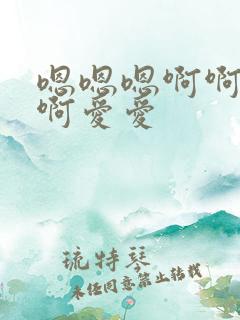 嗯嗯嗯啊啊
啊爱爱
琉特琴
未经同意,禁止转载